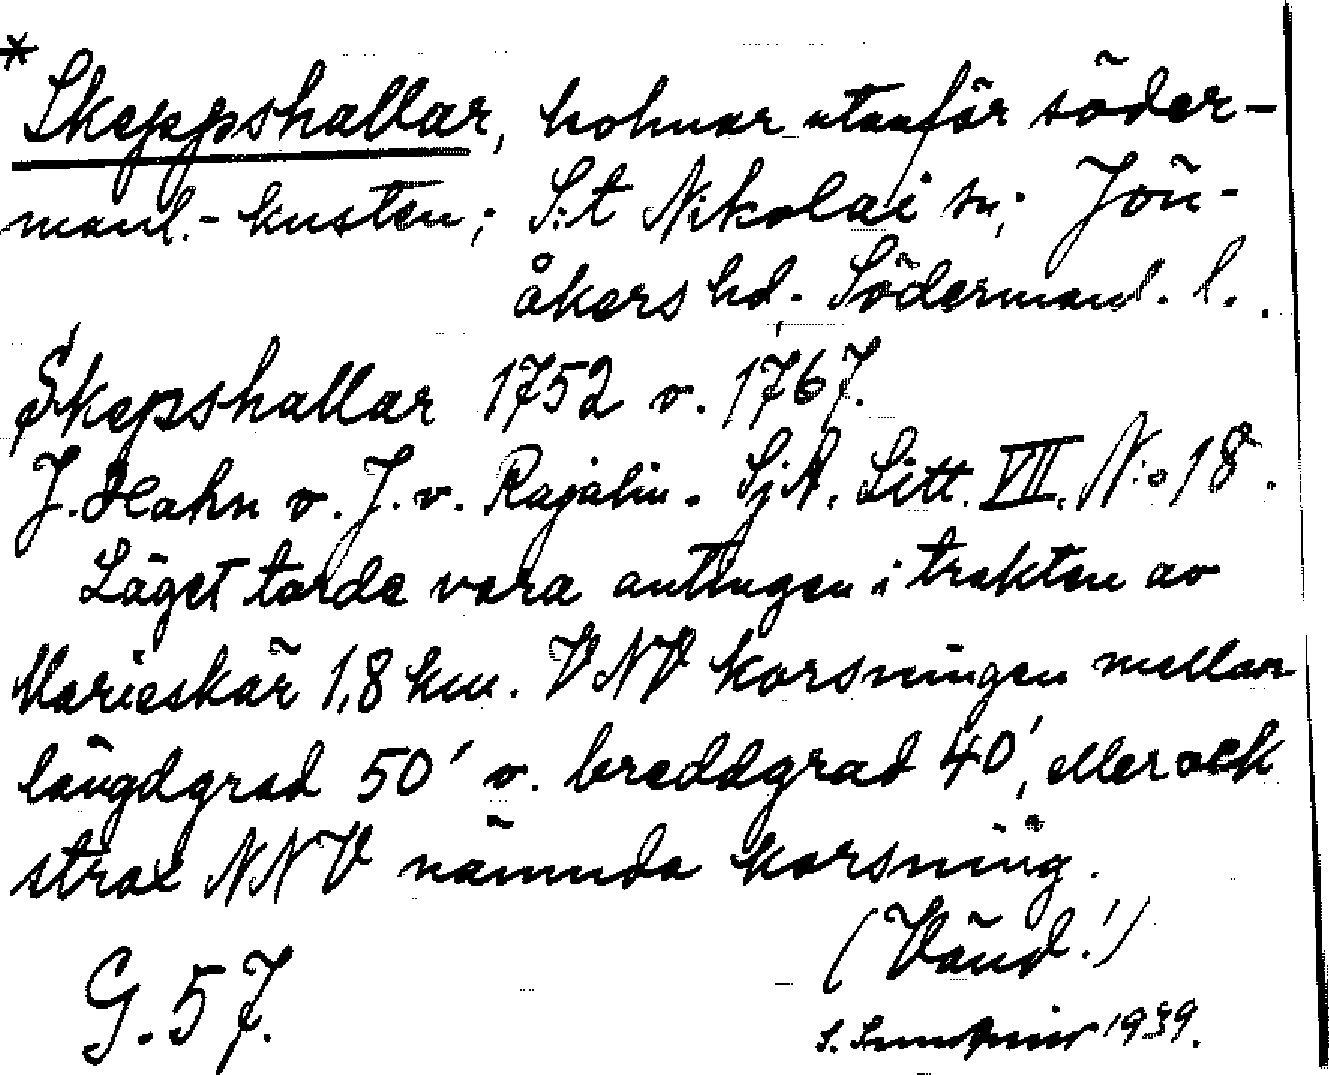 * Skeppshallar, holmar utanför söder-
manl.-kusten; S:t Nikolai sn; Jön-
åkers hd. Södermanl. l.
Skepshallar 1752 o. 1767.
J. Hahn o. J. v. Rajalin. SjA. Litt. VII. N:o 18.
Läget torde vara antingen i trakten av
Marieskär 1,8 km. VNV korsningen mellan
längdgrad 50' o. breddgrad 40', eller ock
strax NNV nämnda korsning.
(Vänd!)
G. 57.
S. 1939.